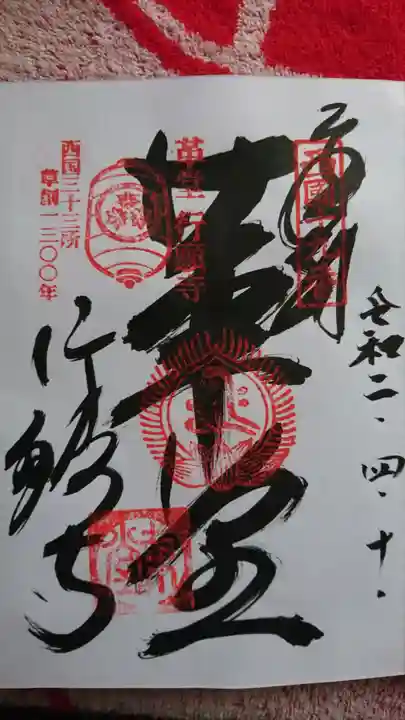 令和二・四・十・
奉拝
西國十九番
革堂
革堂行願寺
行願寺
西国三十三所
草創一三〇〇年